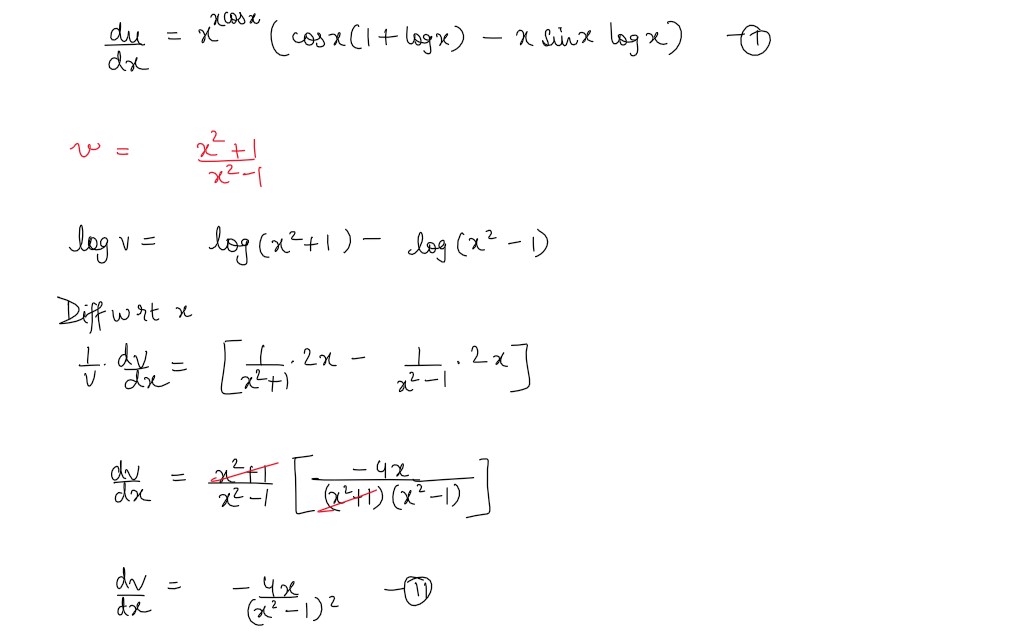 du/dx = x^(x cosx) (cosx(1 + logx) − x sinx logx) —Ⓘ
v = (x² + 1)/(x² − 1)
log v = log(x² + 1) − log(x² − 1)
Diff wrt x
1/v · dv/dx = [1/(x²+1) · 2x − 1/(x²−1) · 2x]
dv/dx = (x²+1)/(x²−1) [−4x/((x²+1)(x²−1))]
dv/dx = −4x/(x²−1)² —(II)